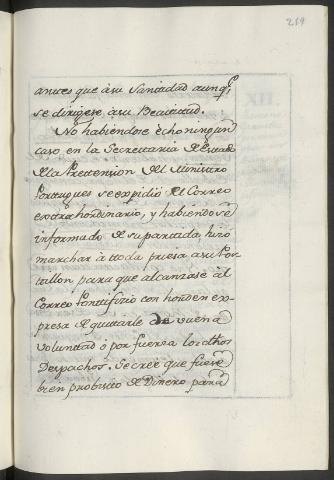 219
antes que à su Santidad aunq.e
se dirigese à su Beatitud.
No habiendose echo ningun
caso en la Secretaria de Estado
de la Prettension del Ministro
Portugues se expidio el Correo
extrahordinario, y habiendose
informado de su partida hizo
marchar à ttoda priesa a su Pos-
tillon para que alcanzase al
Correo Pontifizio con horden ex-
presa de quitarle de vuena
voluntad ò por fuerza los dhos
Despachos. Se cree que fuese
bien probisto de Dinero para